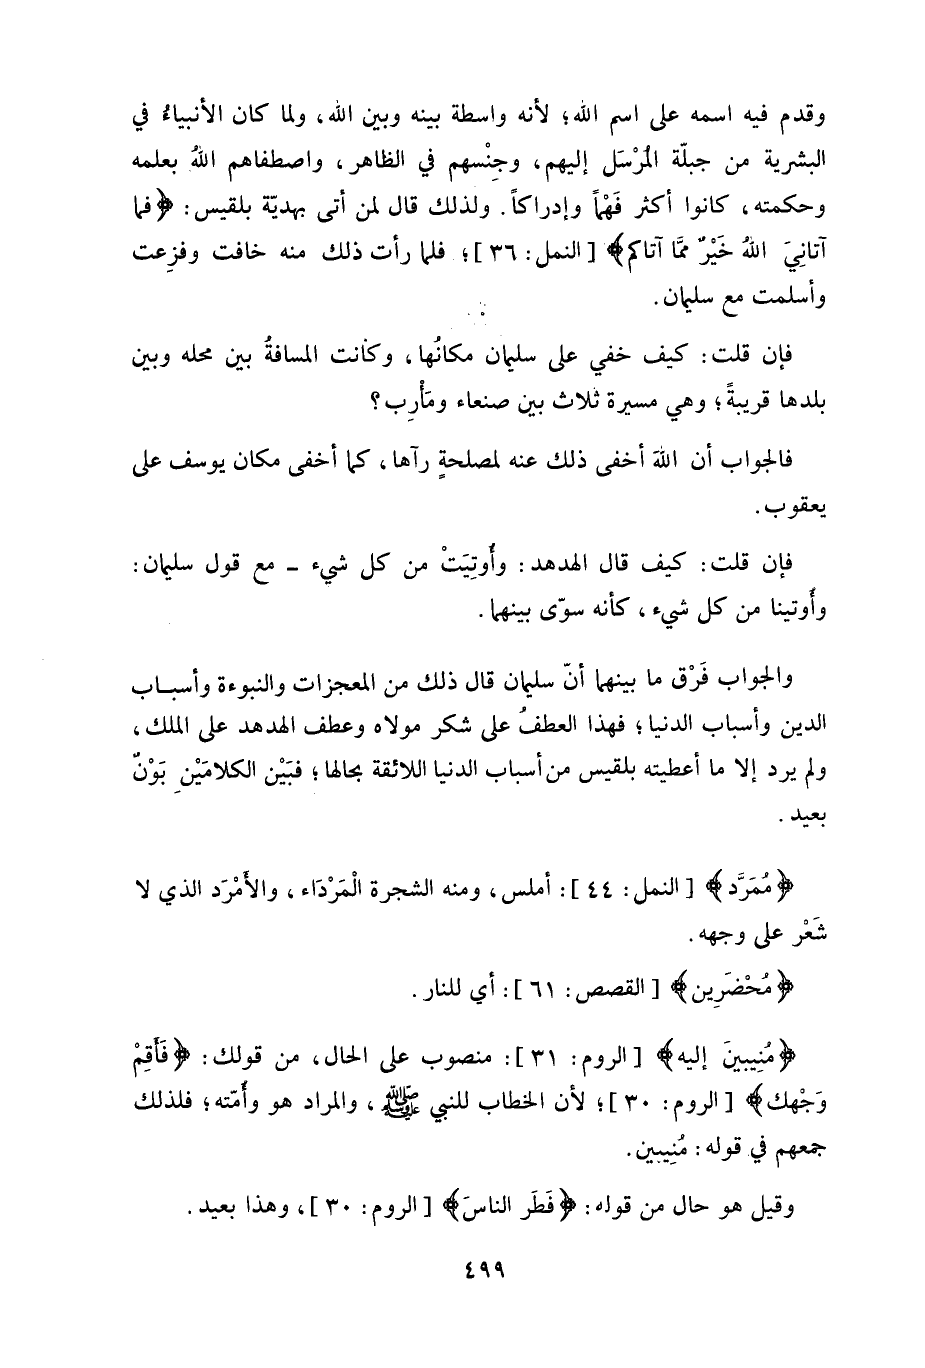 وقدم فيه اسمه على اسم الله؛ لأنه واسطة بينه وبين الله، ولما كان الأنبياءُ في
البشرية من جبلّة المُرْسَل إليهم، وجِنْسهم في الظاهر، واصطفاهم اللهُ بعلمه
وحكمته، كانوا أكثر فَهْماً وإدراكاً. ولذلك قال لمن أتى بهديّة بلقيس: ﴿فما
آتانِيَ اللهُ خَيْرٌ ممَّا آتاكم﴾ [النمل: ٣٦]؛ فلما رأت ذلك منه خافت وفزِعت
وأسلمت مع سليمان.
فإن قلت: كيف خفي على سليمان مكانُها، وكانت المسافةُ بين محله وبين
بلدها قريبةً؛ وهي مسيرة ثلاث بين صنعاء ومَأْرِب؟
فالجواب أن اللهَ أخفى ذلك عنه لمصلحةٍ رآها، كما أخفى مكان يوسف على
يعقوب.
فإن قلت: كيف قال الهدهد: وأُوتِيَتْ من كل شيء - مع قول سليمان:
وأُوتينا من كل شيء، كأنه سوّى بينهما.
والجواب فَرْق ما بينهما أنّ سليمان قال ذلك من المعجزات والنبوءة وأسباب
الدين وأسباب الدنيا؛ فهذا العطفُ على شكر مولاه وعطف الهدهد على الملك،
ولم يرد إلا ما أعطيته بلقيس من أسباب الدنيا اللائقة بحالها؛ فبَيْن الكلامَيْنِ بَوْنٌ
بعيد.
﴿مُمَرَّد﴾ [النمل: ٤٤]: أملس، ومنه الشجرة الْمَرْدَاء، والأَمْرَد الذي لا
شَعْر على وجهه.
﴿مُحْضَرِين﴾ [القصص: ٦١]: أي للنار.
﴿مُنِيبينَ إليه﴾ [الروم: ٣١]: منصوب على الحال، من قولك: ﴿فَأَقِمْ
وَجْهك﴾ [الروم: ٣٠]؛ لأن الخطاب للنبي ﷺ، والمراد هو وأُمّته؛ فلذلك
جمعهم في قوله: مُنِيبين.
وقيل هو حال من قوله: ﴿فَطَر الناسَ﴾ [الروم: ٣٠]، وهذا بعيد.
٤٩٩